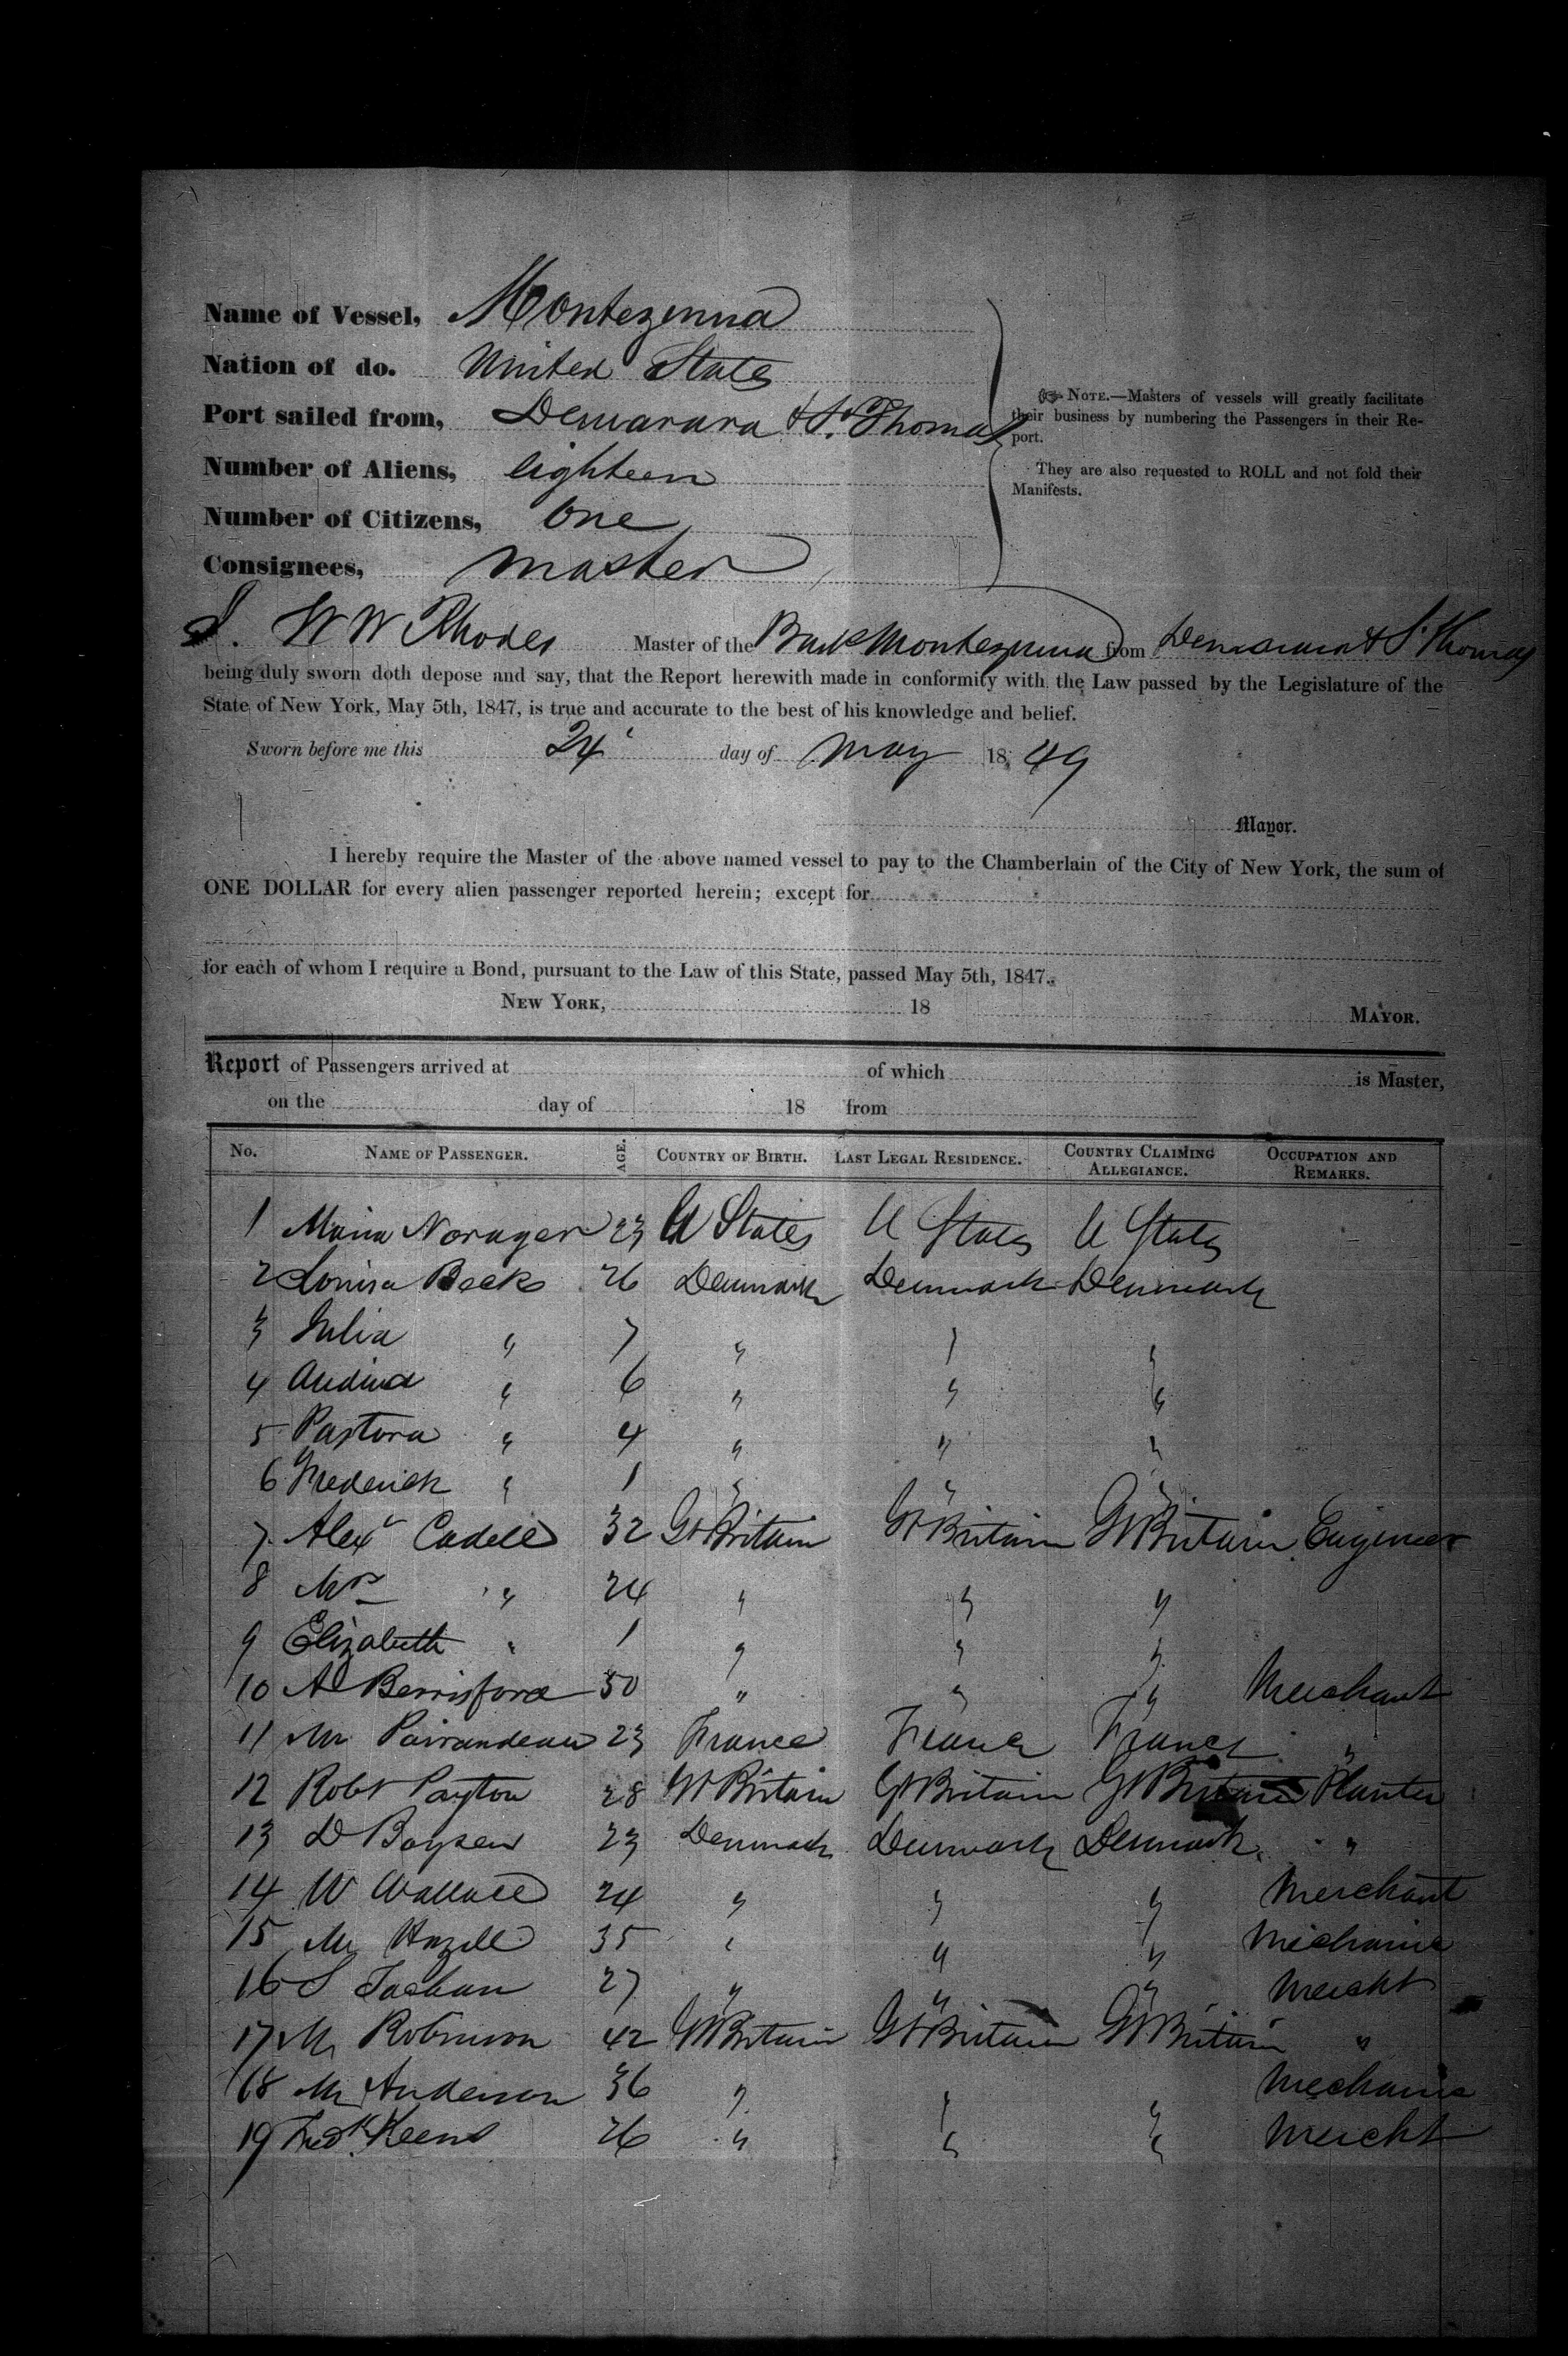 Name of Vessel, Montezuma
Nation of do. United States
Port sailed from, Demarara & St. Thomas
Number of Aliens, Eighteen
Number of Citizens, One
Consignees, Master
NOTE.—Masters of vessels will greatly facilitate
their business by numbering the Passengers in their Re-
port.
They are also requested to ROLL and not fold their
Manifests.
I. W W Rhodes Master of the Bark Montezuma from Demarara & St Thomas
being duly sworn doth depose and say, that the Report herewith made in conformity with the Law passed by the Legislature of the
State of New York, May 5th, 1847, is true and accurate to the best of his knowledge and belief.
Sworn before me this 24 day of May 1849
Mayor.
I hereby require the Master of the above named vessel to pay to the Chamberlain of the City of New York, the sum of
ONE DOLLAR for every alien passenger reported herein; except for
for each of whom I require a Bond, pursuant to the Law of this State, passed May 5th, 1847.
NEW YORK, 18 MAYOR.
Report of Passengers arrived at of which is Master,
on the day of 18 from
No. NAME OF PASSENGER. AGE. COUNTRY OF BIRTH. LAST LEGAL RESIDENCE. COUNTRY CLAIMING ALLEGIANCE. OCCUPATION AND REMARKS.
1 Maria Norager 23 U States U States U States
2 Louisa Beeks 26 Denmark Denmark Denmark
3 Julia " 7 " " "
4 " 6 " " "
5 Pastora " 4 " " "
6 Frederick " 1 " " "
7 Alexr Cadell 32 Gt Britain Gt Britain Gt Britain Engineer
8 Mrs " 24 " " "
9 Elizabeth " 1 " " "
10 A Berrisford 50 " " " Merchant
11 Mr Pairaudeau 23 France France France "
12 Robt Payton 28 Gt Britain Gt Britain Gt Britain Planter
13 D Boysen 23 Denmark Denmark Denmark "
14 W Wallace 24 " " " Merchant
15 Mr Hazell 35 " " " Mechanic
16 S 27 " " " Mercht
17 Mr Robinson 42 Gt Britain Gt Britain Gt Britain "
18 Mr Anderson 36 " " " Mechanic
19 Fredk Keens 26 " " " Mercht